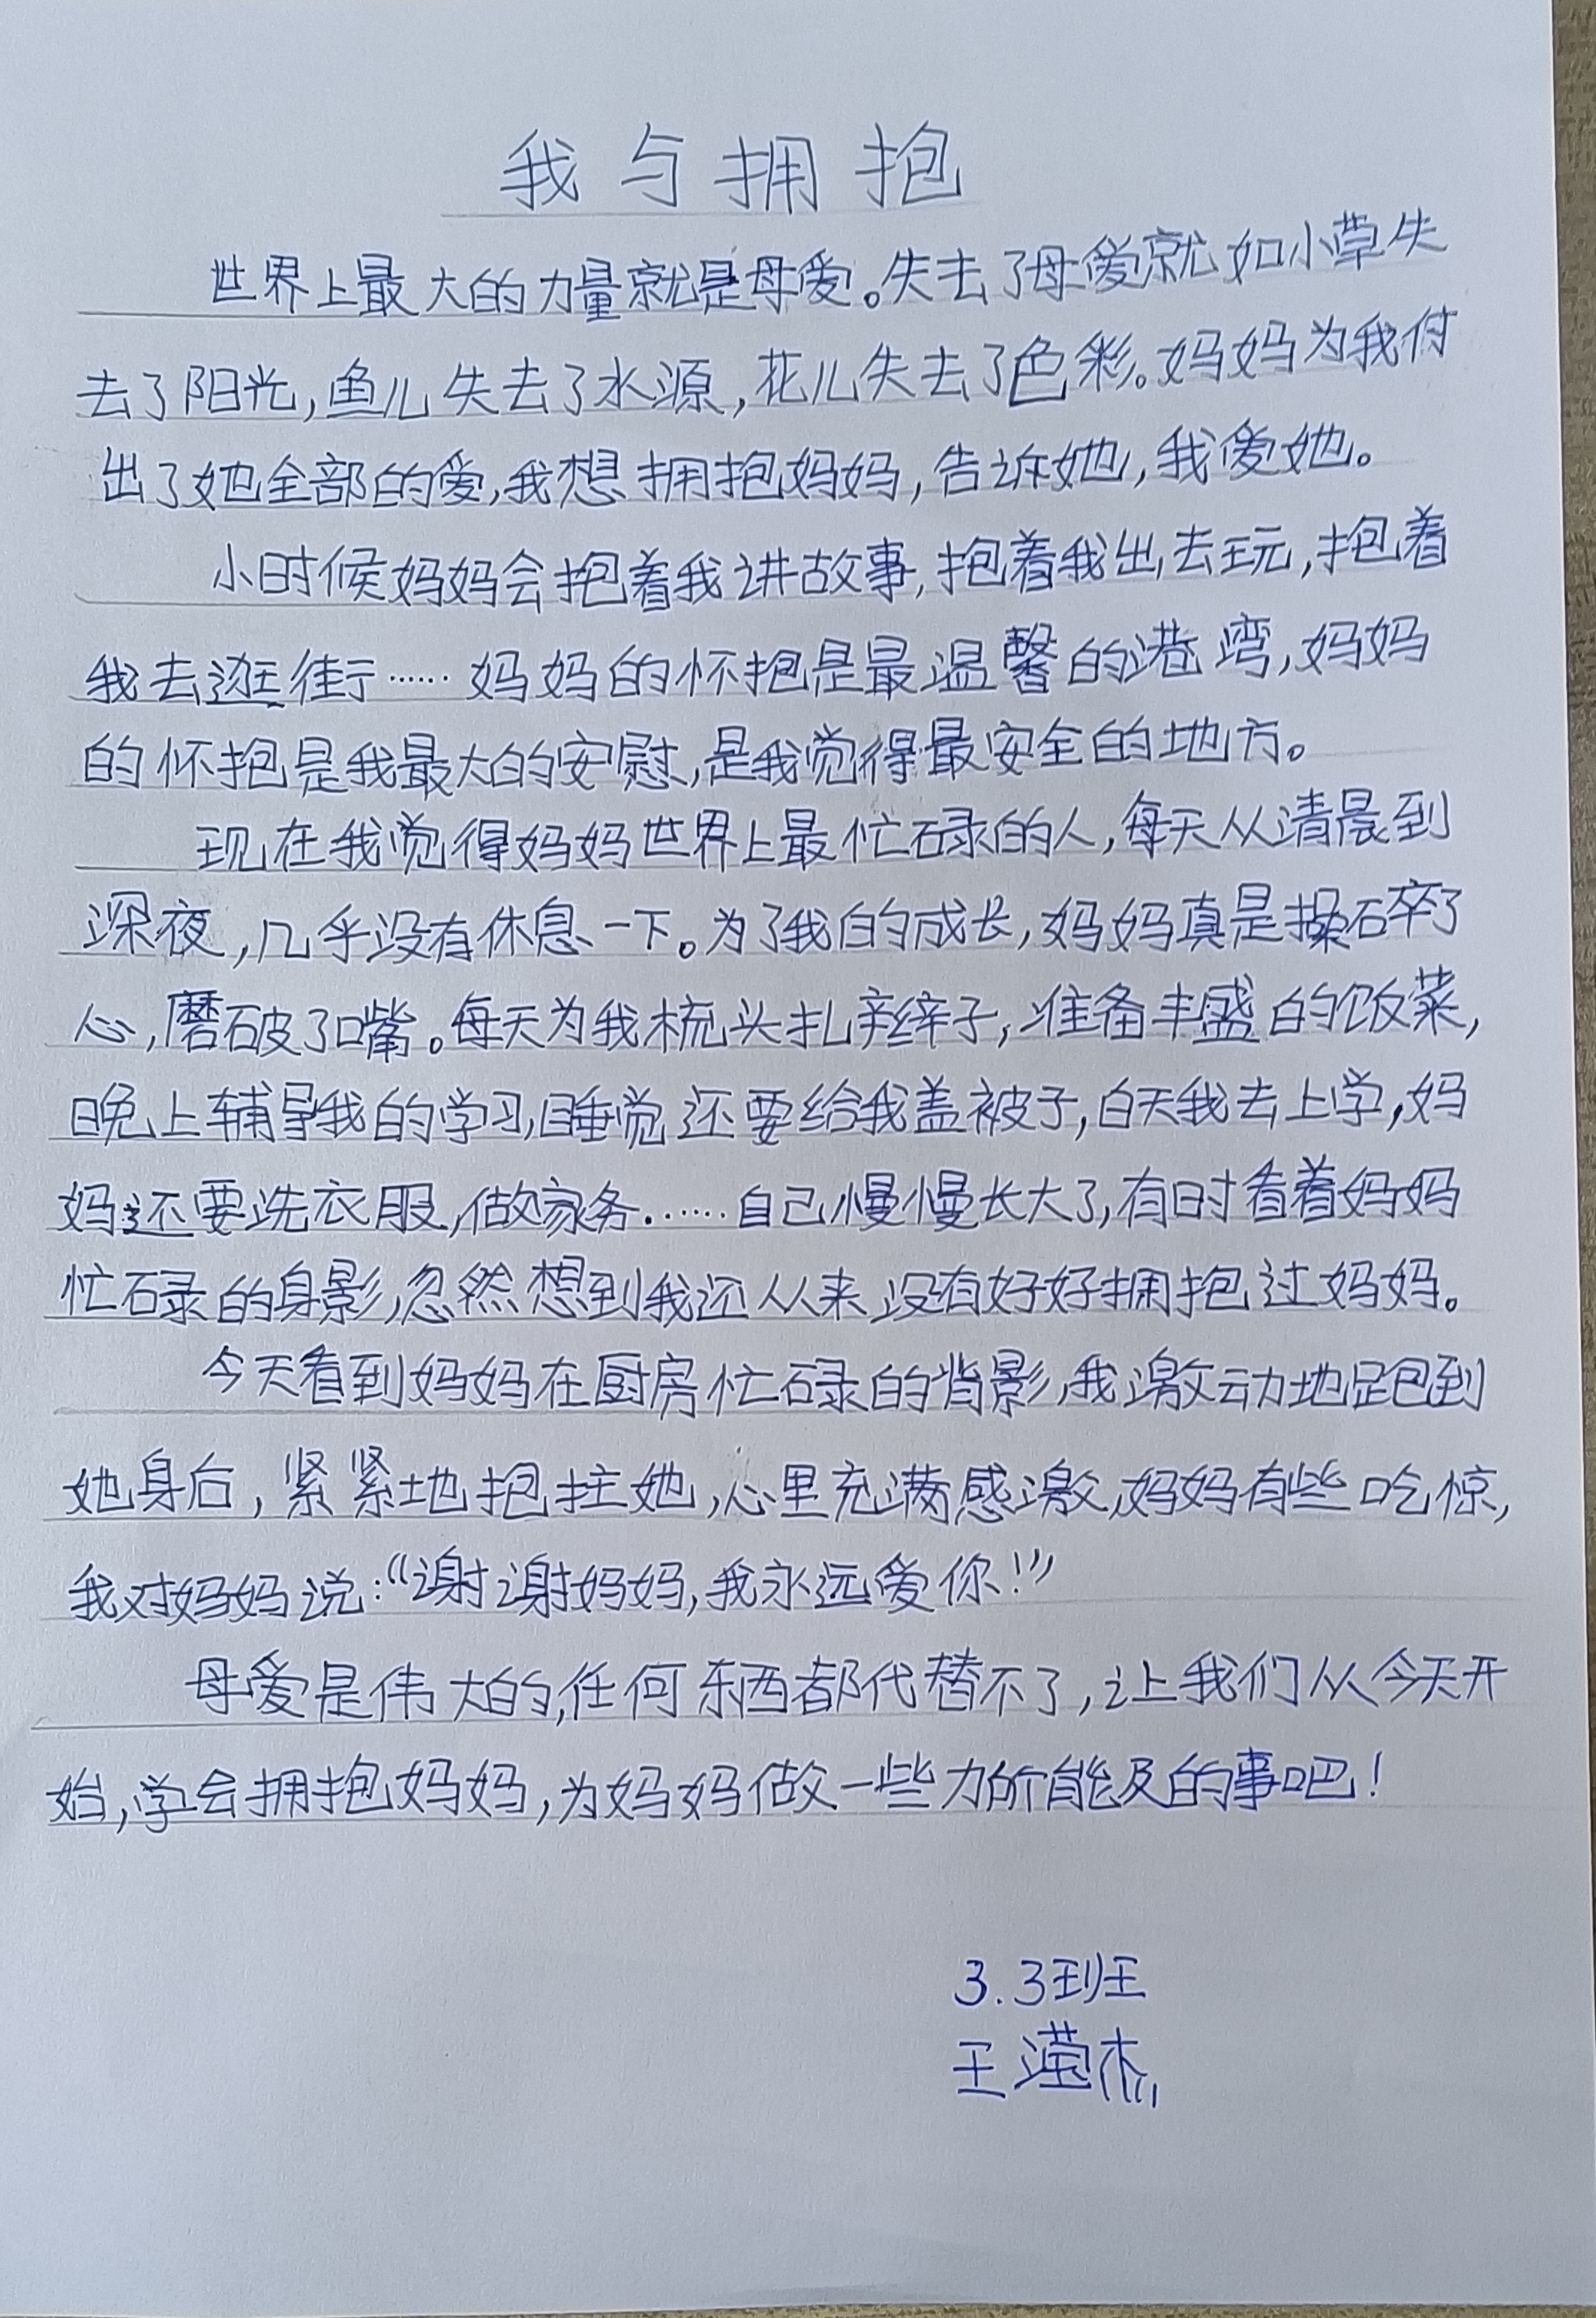 我与拥抱
世界上最大的力量就是母爱。失去了母爱就如小草失
去了阳光,鱼儿失去了水源,花儿失去了色彩。妈妈为我付
出了她全部的爱,我想拥抱妈妈,告诉她,我爱她。
小时候妈妈会抱着我讲故事,抱着我出去玩,抱着
我去逛街……妈妈的怀抱是最温馨的港湾,妈妈
的怀抱是我最大的安慰,是我觉得最安全的地方。
现在我觉得妈妈世界上最忙碌的人,每天从清晨到
深夜,几乎没有休息一下。为了我的成长,妈妈真是操碎了
心,磨破了嘴。每天为我梳头扎辫子,准备丰盛的饭菜,
晚上辅导我的学习,睡觉还要给我盖被子,白天我去上学,妈
妈还要洗衣服,做家务……自己慢慢长大了,有时看着妈妈
忙碌的身影,忽然想到我还从来没有好好拥抱过妈妈。
今天看到妈妈在厨房忙碌的背影,我激动地跑到
她身后,紧紧地抱住她,心里充满感激,妈妈有些吃惊,
我对妈妈说:“谢谢妈妈,我永远爱你!”
母爱是伟大的,任何东西都代替不了,让我们从今天开
始,学会拥抱妈妈,为妈妈做一些力所能及的事吧!
3.3班
王滢杰